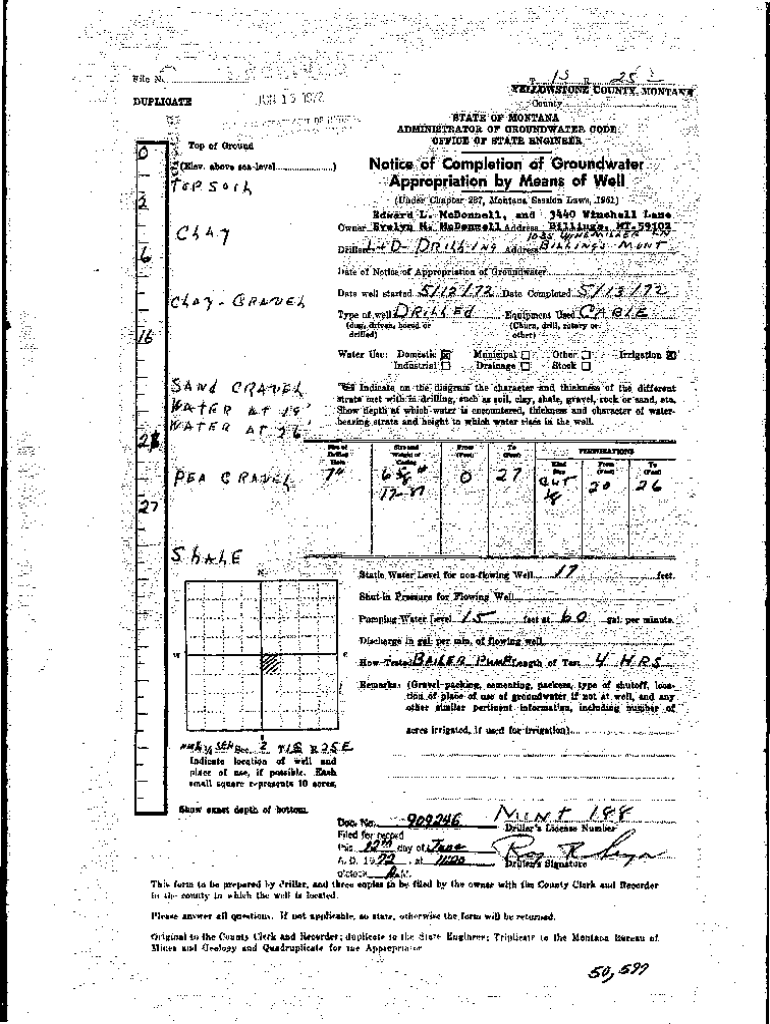 File No.
T 1S R 25E
YELLOWSTONE COUNTY, MONTANA
DUPLICATE
JUN 15 1972
County
STATE OF MONTANA
ADMINISTRATOR OF GROUNDWATER CODE
OFFICE OF STATE ENGINEER
0
Top of Ground
(Elev. above sea-level)
Notice of Completion of Groundwater
Appropriation by Means of Well
(Under Chapter 237, Montana Session Laws, 1961)
TOP SOIL
2
Edward L. McDonnell, and 3440 Winchell Lane
Owner Evelyn M. McDonnell Address Billings, MT. 59102
CLAY
6
Driller L+D DRILLING Address BILLINGS MONT
Date of Notice of Appropriation of Groundwater
Date well started 5/12/72 Date Completed 5/13/72
CLAY-GRAVEL
16
Type of well DRILLED Equipment Used CABLE
(dug, driven, bored or drilled)
(Churn, drill, rotary or other)
Water Use: Domestic Municipal Other Irrigation
Industrial Drainage Stock
SAND GRAVEL
WATER AT 19'
WATER AT 26'
Indicate on the diagram the character and thickness of the different
strata met with in drilling, such as soil, clay, shale, gravel, rock or sand, etc.
Show depth at which water is encountered, thickness and character of water-
bearing strata and height to which water rises in the well.
Size of Drilled Hole
Size and Weight of Casing
From (Feet)
To (Feet)
PERFORATIONS
Kind Size
From (Feet)
To (Feet)
PEA GRAVEL
27
7"
6 5/8"
17#
0
27
CUT
20
26
SHALE
Static Water Level for non-flowing Well 17 feet.
Shut-in Pressure for Flowing Well
Pumping Water Level 15 feet at 60 gal. per minute.
Discharge in gal. per min. of flowing well
How Tested BAILER PUMP Length of Test 4 HRS
Remarks: (Gravel packing, cementing, packers, type of shutoff, loca-
tion of place of use of groundwater if not at well, and any
other similar pertinent information, including number of
acres irrigated, if used for irrigation)
N
W
E
Sec. 2 T1S R25E
Indicate location of well and
place of use, if possible. Each
small square represents 10 acres.
Show exact depth of bottom.
Doc. No. 909246
MONT 188
Driller's License Number
Filed for record
this 12th day of June
A. D. 1972, at 11:00
o'clock A.M.
Driller's Signature
This form to be prepared by driller, and three copies to be filed by the owner with the County Clerk and Recorder
in the county in which the well is located.
Please answer all questions. If not applicable, so state, otherwise the form will be returned.
Original to the County Clerk and Recorder; duplicate to the State Engineer; Triplicate to the Montana Bureau of
Mines and Geology and Quadruplicate for the Appropriator
50,597